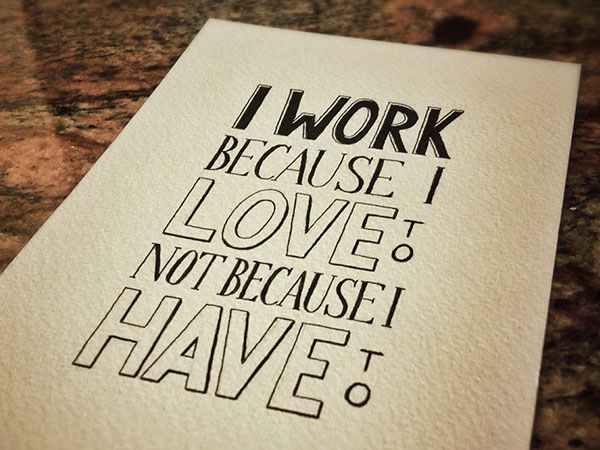 I WORK
BECAUSE I
LOVE TO
NOT BECAUSE I
HAVE TO